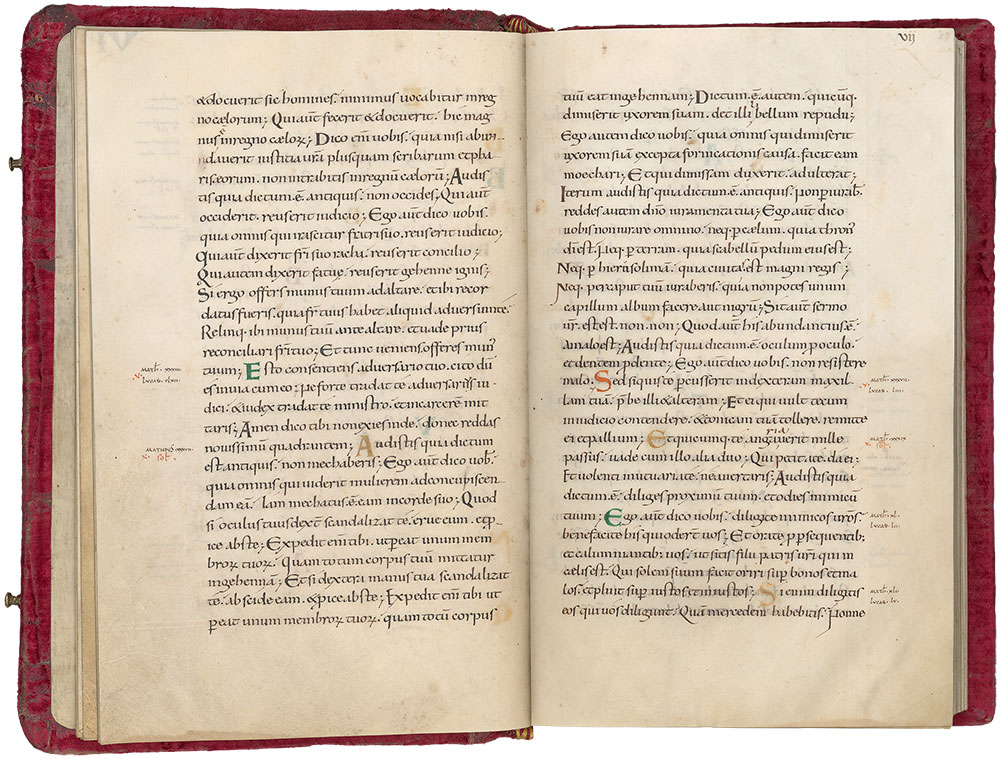 &docuerit sic homines. minimus uocabitur inreg
no cęlorum; Qui aut̄ fecerit & docuerit. hic mag
nus inregno cælorꝝ; Dico em̄ uobis. quia nisi abun
dauerit iustitia ur̄a plusquam scribarum & pha
riseorum. non intrabitis inregnū cælorū; Audis
tis quia dictum ē. antiquis. non occides; Qui aut̄
occiderit. reus erit iudicio; Ego aut̄ dico uobis.
quia omnis qui irascitur fratri suo. reus erit iudicio;
Qui aut̄ dixerit fr̄i suo racha. reus erit concilio;
Qui autem dixerit fatuę. reus erit gehenne ignis;
Si ergo offers munus tuum ad altare. & ibi recor
datus fueris. quia fr̄ tuus habet aliquid aduersum te.
Relinq; ibi munus tuū ante altare. & uade prius
reconciliari fr̄i tuo; Et tunc ueniens offeres mun'
tuum; Esto consentiens aduersario tuo. cito dū
es in uia cum eo; Ne forte tradat te aduersarius iu
dici. & iudex tradat te ministro. & in carcerē mit
taris; Amen dico tibi non exies inde. donec reddas
nouissimū quadrantem; Audistis quia dictum
est antiquis. non mechaberis; Ego aut̄ dico uob'.
quia omnis qui uiderit mulierem ad concupiscen
dam eā. Iam mechatus ē. eam in corde suo; Quod
si oculus tuus dext̄ scandalizat te. erue eum. & p̄
ice abs te; Expedit em̄ tibi. ut pereat unum mem
brorꝝ tuorꝝ. Quam totum corpus tuū mittatur
in gehennā; Et si dextera manus tua scandalizat
te. abscide eam. & p̄ice abs te; Expedit em̄ tibi ut
ꝑeat unum membrorꝝ tuorꝝ. quam totū corpus
Math̄. xxxvi.
lucas. clxii.
Matheus xxxvii.
x. sol̄.
vij
tuū eat in gehennam; Dictum ē. autem. quicūq.
dimiserit uxorem suam. det illi libellum repudii;
Ego autem dico uobis. quia omnis qui dimiserit
uxorem suā excepta fornicationis causa. facit eam
moechari; Et qui dimissam duxerit. adulterat;
Iterum audistis quia dictum ē. antiquis. Non ꝑiurab̄.
reddes autem dn̄o iuramenta tua; Ego aut̄ dico
uobis non iurare omnino. neq. ꝑ cælum. quia thron'
dī est. Neq. ꝑ terram. quia scabellū pedum eius est;
Neq. ꝑ hierusolimā. quia ciuitas est magni regis;
Neq. ꝑ caput tuū iuraberis. quia non potes unum
capillum album facere. aut nigrū; Sit aut̄ sermo
ur̄. est. est. non. non; Quod aut̄ his abundantius ē.
a malo est; Audistis quia dictum ē. oculum pro oculo.
& dentem pro dente; Ego aut̄ dico uobis. non resistere
malo; Sed si quis te percusserit in dexteram maxil
lam tuā. p̄be illi & alteram; Et ei qui uult tecum
in iudicio contendere. & tunicam tuā tollere. remitte
ei & pallium; Et quicumq. te angariauerit mille
passus. uade cum illo. alia duo; Qui petit a te. da ei;
Et uolenti mutuari a te. ne auertaris; Audistis quia
dictum ē. diliges proximū tuum. & odies inimicū
tuum; Ego aut̄ dico uobis. diligite inimicos ur̄os.
benefacite his qui odert̄ uos; Et orate p̄ ꝑsequentib;
& calumniantib; uos. ut sitis filii patris ur̄i qui in
cælis est. Qui solem suum facit oriri suꝑ bonos & ma
los. & pluit suꝑ iustos & iniustos; Si enim diligitis
eos qui uos diligunt. Quā mercedem habebitis. Nonne
Math̄. xxxviii.
lucas. liii.
Math̄. xxxix.
x. sol̄.
Math̄. xl.
lucas. lii.
Math̄. xli.
lucas. lv.